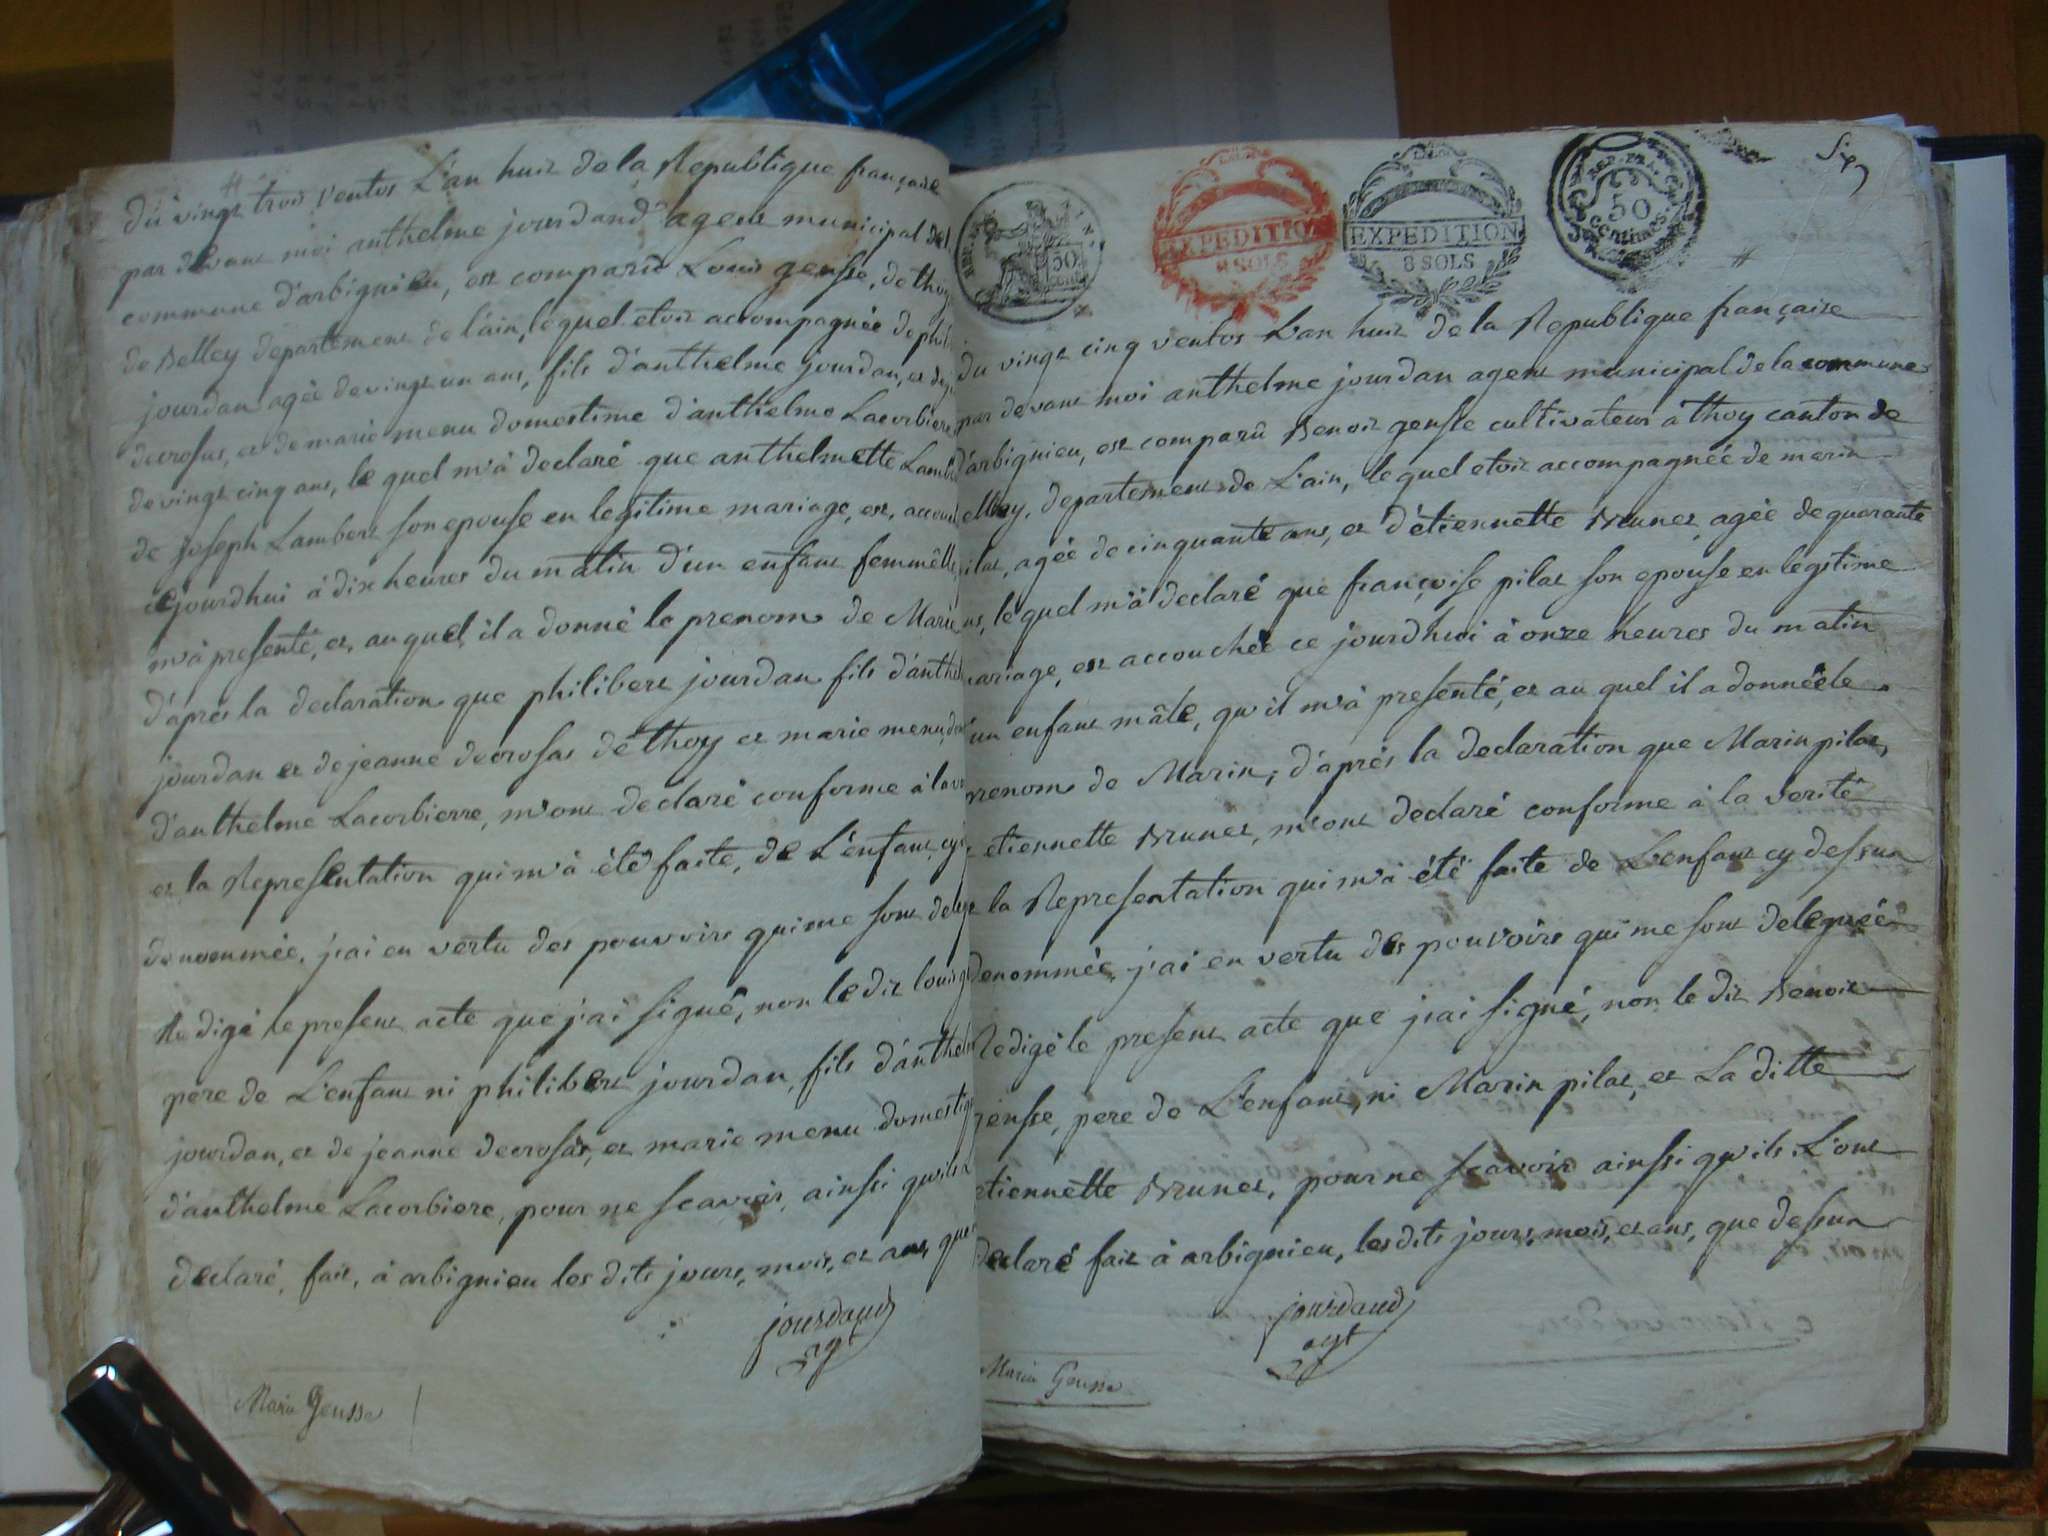 du vingt trois ventos L'an huit de la Republique française
par devant moi anthelme jourdand agent municipal de l
commune d'arbignieu, est comparû Louis gensse, de thoy
de Belley departement de l'ain, lequel etoit accompagnée de phili
jourdan agée de vingt un ans, fils d'anthelme jourdan, et de
decrosas, et de marie menu domestime d'anthelme Lacorbiere
de vingt cinq ans, le quel m'à declaré que anthelmette Lamb
de joseph Lambert son epouse en legitime mariage, est, accou
cejourdhui à dix heures du matin d'un enfant femmêlle
m'à presenté, et, au quel, il a donné le prenom de Marie
d'après la declaration que philibert jourdan fils d'anthel
jourdan et de jeanne decrosas de thoy et marie menu, do
d'anthelme Lacorbierre, m'ont declaré conforme à la ve
et la Representation qui m'à été faite, de L'enfant, cy
denommée, j'ai en vertu des pouvoirs qui me sont deleg
Redigé le present acte que j'ai signé, non le dit louis g
pere de L'enfant ni philibert jourdan, fils d'anthel
jourdan, et de jeanne decrosas, et marie menu domestiq
d'anthelme Lacorbiere, pour ne scavoir, ainsi qu'ils
declaré, fait, à arbignieu les dits jours, mois, et ans, que
jourdand
agt
Marie Gensse
REP. FRA.
50
cent
EXPEDITION
8 SOLS
EXPEDITION
8 SOLS
REP. FRA.
50
centimes
Six
du vingt cinq ventos L'an huit de la Republique française
par devant moi anthelme jourdan agent municipal de la commune
d'arbignieu, est comparû Benoit gensse cultivateur a thoy canton de
elley, departement de L'ain, le quel etoit accompagnéé de marin
ilat, agée de cinquante ans, et d'étiennette Brunet, agée de quarante
ns, le quel m'à declaré que françoise pilat son epouse en legitime
ariage, est accouchée ce jourdhui à onze heures du matin
un enfant mâle, qu'il m'à presenté, et au quel il a donnéé le
renom de Marin, d'après la declaration que Marin pilat,
etiennette Brunet, m'ont declaré conforme à la verité
la Representation qui m'à été faite de L'enfant cy dessus
denommée, j'ai en vertu des pouvoirs qui me sont deleguéés
Redigé le present acte que j'ai signé, non le dit Benoit
gensse, pere de L'enfant, ni Marin pilat, et La ditte
etiennette Brunet, pour ne scavoir ainssi qu'ils L'ont
declaré fait à arbignieu, les dits jours, mois, et ans, que dessus
jourdand
agt
Marin Gensse